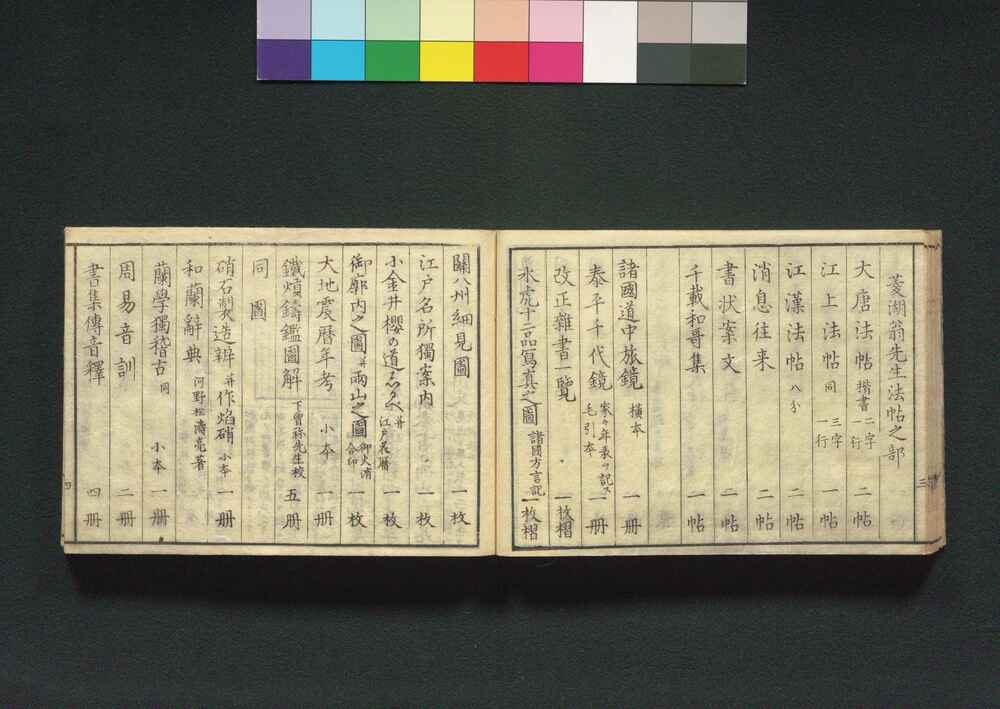 菱湖翁先生法帖之部
大唐法帖 楷書 二字 一行 二帖
江上法帖 同 三字 一行 一帖
江漢法帖 八分 二帖
消息往来 二帖
書状案文 二帖
千載和哥集 一帖
諸國道中旅鏡 横本 一冊
泰平千代鏡 家々年表ヲ記ス 毛引本 二冊
改正雜書一覽 一枚摺
水虎十二品寫真之圖 諸國方言記 一枚摺
三
關八州細見圖 一枚
江戸名所獨案内 一枚
小金井櫻の道志るべ 并 江戸花暦 一枚
御廓内之圖 并 両山之圖 御火消合印 一枚
大地震暦年考 小本 一冊
鐵熕鑄鑑圖解 下曾祢先生校 五冊
同圖
硝石製造辨 并 作焔硝 小本 一冊
和蘭辭典 河野松濤亮著
蘭學獨稽古 同 小本 一冊
周易音訓 二冊
書集傳音釋 四冊
四